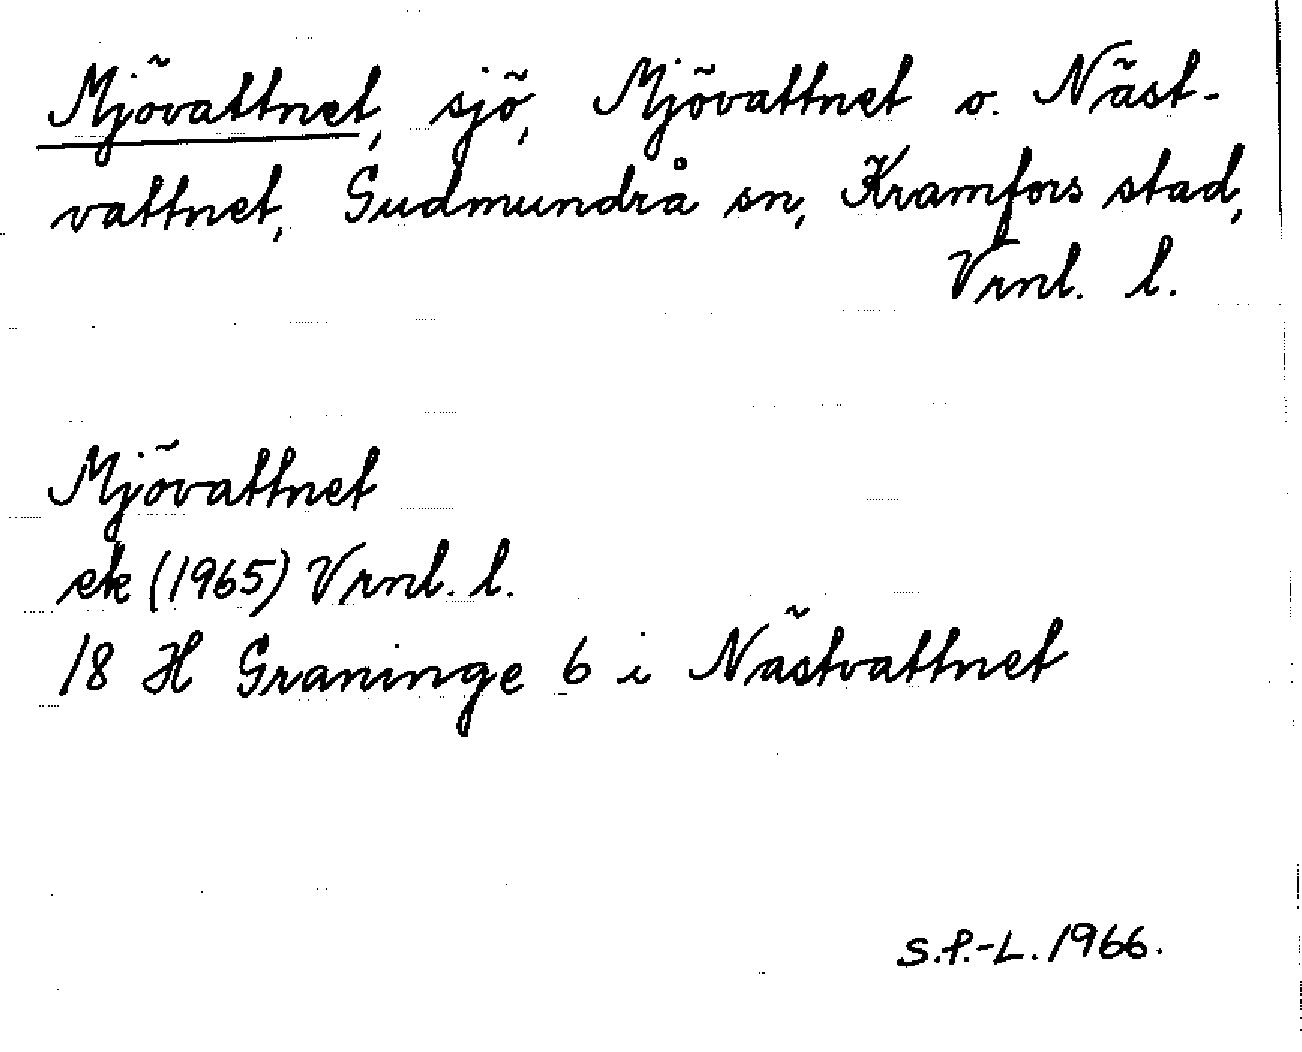 Mjövattnet, sjö, Mjövattnet o. Näst-
vattnet, Gudmundrå sn, Kramfors stad,
Vrnl. l.
Mjövattnet
ek (1965) Vrnl. l.
18 H Graninge 6 i Nästvattnet
S.P.-L. 1966.